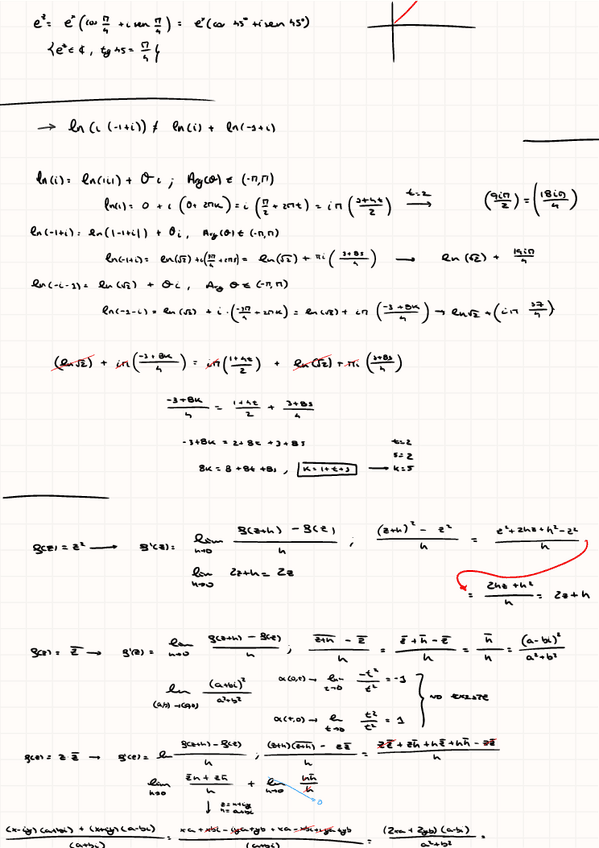 e^z = e^x (cos π/4 + i sen π/4) = e^x (cos 45° + i sen 45°)
→ ln(i(-1+i)) ≠ ln(i) + ln(-1+i)
ln(i) = ln(|i|) + θi ; Arg(θ) ∈ (-π,π)
ln(i) = 0 + i (θ + 2πk) = i (π/2 + 2πt) = iπ ((1+4t)/2) → t=2 (9iπ/2) = (18iπ/4)
ln(-1+i) = ln(|-1+i|) + θi , Arg(θ) ∈ (-π,π)
ln(-1+i) = ln(√2) + i(3π/4 + 2πs) = ln(√2) + πi ((3+8s)/4) → ln(√2) + 19iπ/4
ln(-i-1) = ln(√2) + θi , Arg θ ∈ (-π,π)
ln(-1-i) = ln(√2) + i·(-3π/4 + 2πk) = ln(√2) + iπ ((-3+8k)/4) → ln√2 + (iπ 37/4)
(ln√2) + iπ((-3+8k)/4) = iπ((1+4t)/2) + ln(√2) + πi((3+8s)/4)
(-3+8k)/4 = (1+4t)/2 + (3+8s)/4
-3+8k = 2+8t+3+8s t=2
s=2
8k = 8+8t+8s , k=1+t+s → k=5
g(z) = z² → g'(z) = lim h→0 (g(z+h) - g(z))/h ; ((z+h)² - z²)/h = (z²+2hz+h²-z²)/h
lim h→0 2z+h = 2z
= (2hz+h²)/h = 2z+h
g(z) = z̄ → g'(z) = lim h→0 (g(z+h) - g(z))/h ; (z̄+h̄ - z̄)/h = (z̄+h̄-z̄)/h = h̄/h = (a-bi)²/(a²+b²)
lim (a,b)→(0,0) (a+bi)²/(a²+b²) α(0,t) → lim t→0 -t²/t² = -1
α(t,0) → lim t→0 t²/t² = 1
no existe
g(z) = z z̄ → g'(z) = lim (g(z+h)-g(z))/h ; ((z+h)(z̄+h̄) - zz̄)/h = (zz̄+zh̄+hz̄+hh̄-zz̄)/h
lim h→0 (z̄h+zh̄)/h + lim h→0 hh̄/h 0
z=x+iy
h=a+bi
((x-iy)(a+bi) + (x+iy)(a-bi))/(a+bi) = (xa+xbi-iya+yb+xa-xbi+iya+yb)/(a+bi) = ((2xa+2yb)(a-bi))/(a²+b²)